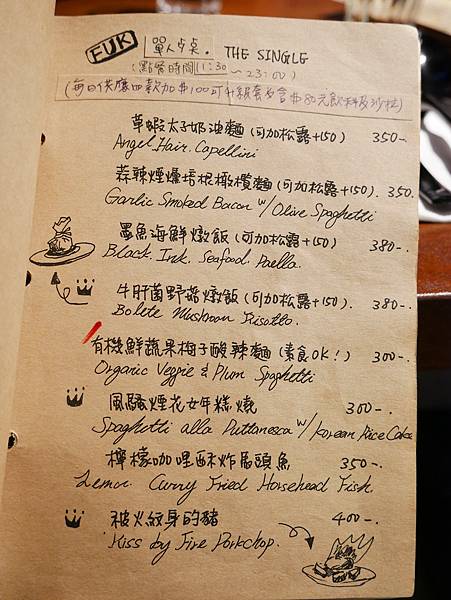 FUK 單人ㄕ桌. THE SINGLE
(點餐時間11:30～23:00)
(每日供應四款加$100可升級套含$80元飲料及沙拉)
草蝦太子奶油麵(可加松露+150) 350-.
Angel Hair. Capellini
蒜辣煙燻培根橄欖麵(可加松露+150). 350.
Garlic Smoked Bacon w/ Olive Spaghetti
墨魚海鮮燉飯(可加松露+150) 380-.
Black. Ink. Seafood. Paella.
牛肝菌野菇燉飯(可加松露+150). 380-.
Bolete Mushroom Risotto.
有機鮮蔬果梅子酸辣麵(素食OK!) 300-.
Organic Veggie & Plum Spaghetti
風騷煙花女年糕燒 300-.
Spaghetti alla Puttanesca w/ Korean Rice Cake
檸檬咖哩酥炸馬頭魚 350-.
Lemon Curry Fried Horsehead Fish.
被火紋身的豬 400-.
Kiss by Fire Porkchop.